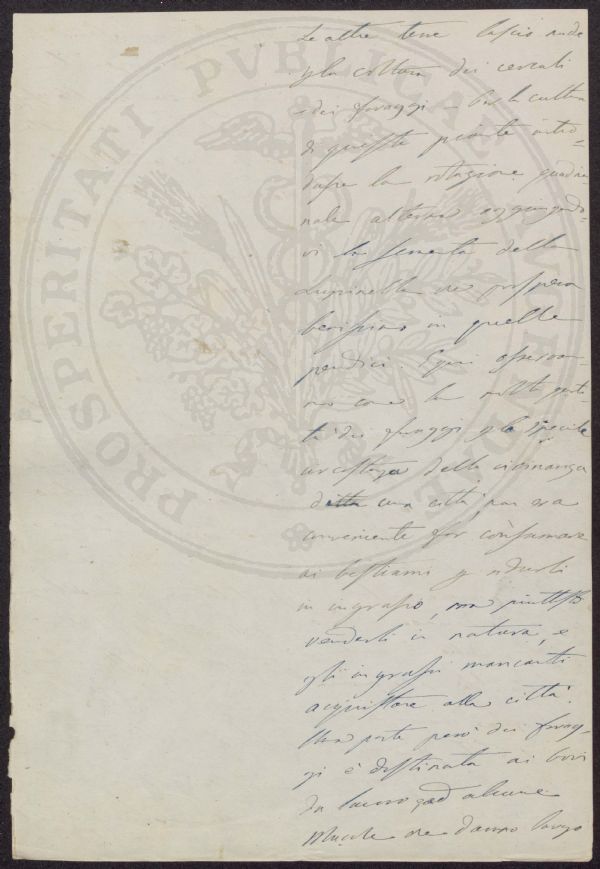 Le altre terre lascio nude
p la coltura dei cereali
e dei foraggi – Per la cultura
di queste piante intro=
dussi la rotazione quadrien
nale alterna aggiungendo=
vi la sementa della
Lupinella che prospera
benissimo in quelle
pendici. Egari osservan
no come la molta quanti
tà dei foraggi p la speciale
circostanza della vicinanza
della una città, non era
conveniente far consumare
ai bestiami p ridurli
in ingrasso, ma piuttosto
venderli in natura, e
gli ingrassi mancanti
acquistare alla città.
Una parte però dei forag-
gi è destinata ai bovi
da lavoro ed alcune
che danno luogo
PROSPERITATI PVBLICAE AVGENDAE